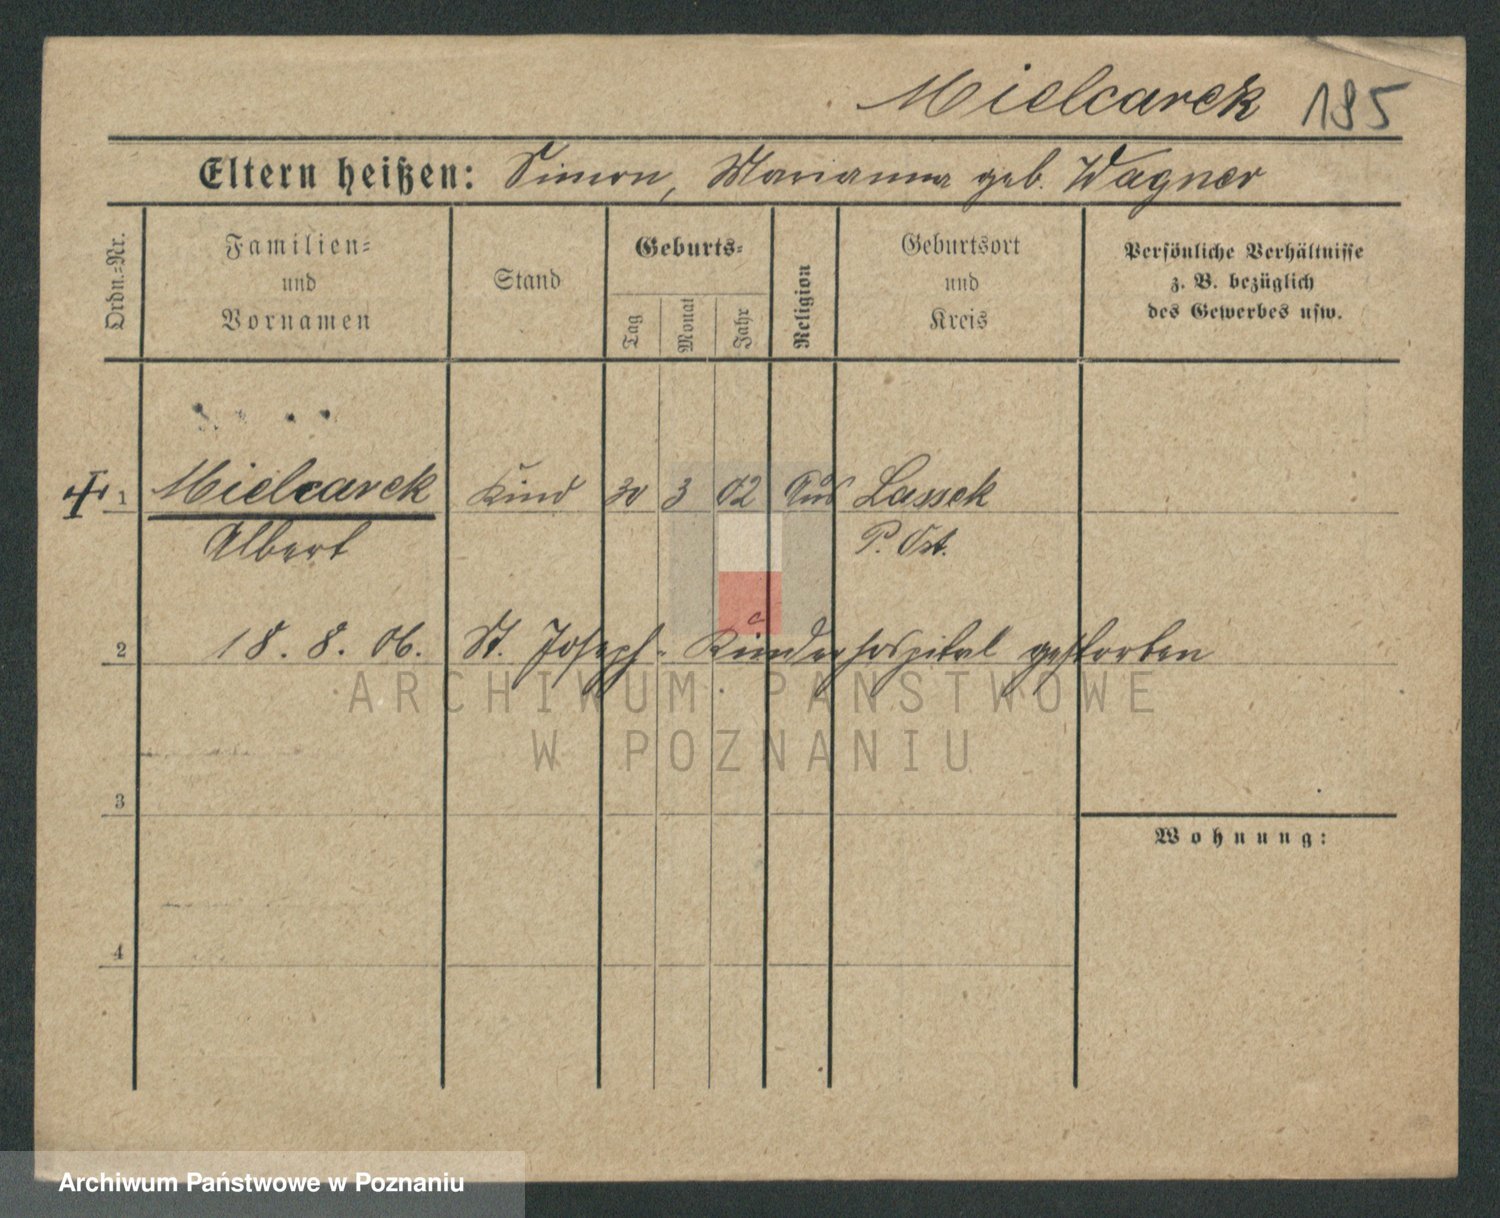 Mielcarek 195
Eltern heißen: Simon, Marianna geb. Wagner
Ordn.-Nr.
Familien- und Vornamen
Stand
Geburts-
Tag
Monat
Jahr
Religion
Geburtsort und Kreis
Persönliche Verhältnisse
z. B. bezüglich
des Gewerbes usw.
1 Mielcarek Kind 30 3 02 Lassek
Albert P. Ost.
2 18. 8. 06. St. Joseph- Kinderhospital gestorben
ARCHIWUM PAŃSTWOWE
W POZNANIU
3
Wohnung:
4
Archiwum Państwowe w Poznaniu